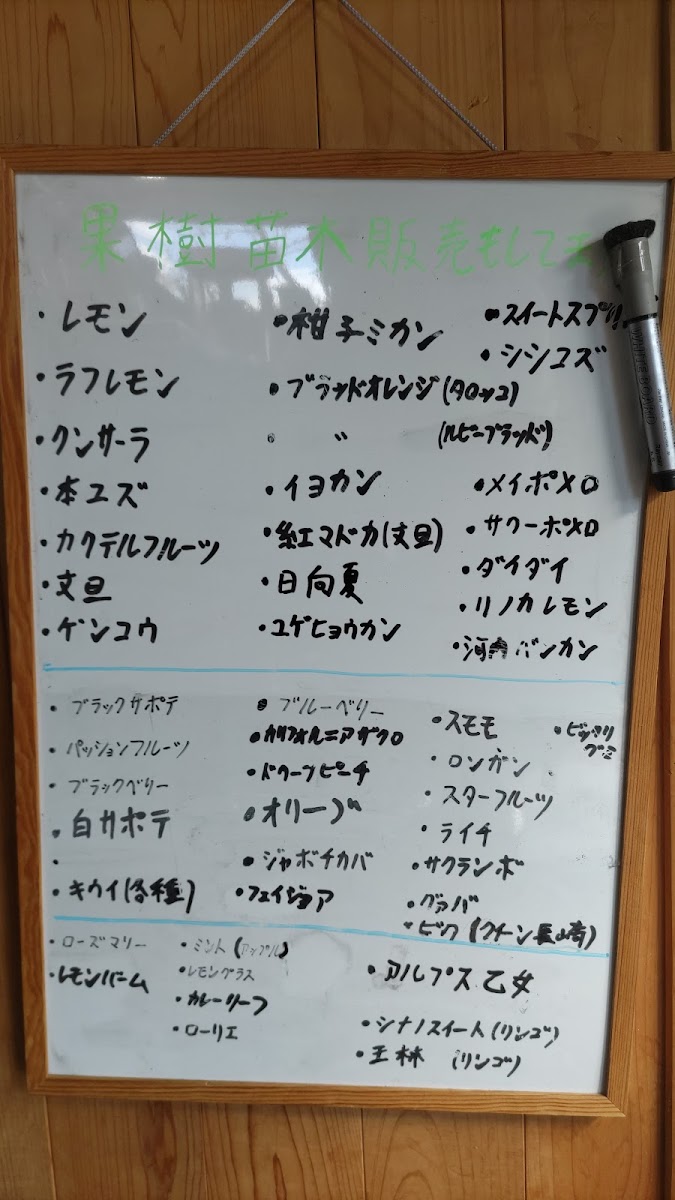 果樹苗木販売もしてま
・レモン
・ラフレモン
・クンサーラ
・本ユズ
・カクテルフルーツ
・文旦
・ゲンコウ
・柑子ミカン
・ブラッドオレンジ(タロッコ)
・ 〃 (ルビーブラッド)
・イヨカン
・紅マドカ(文旦)
・日向夏
・ユゲヒョウカン
・スイートスプリ
・シシユズ
・メイポメロ
・サワーポメロ
・ダイダイ
・リノカレモン
・河内バンカン
・ブラックサポテ
・パッションフルーツ
・ブラックベリー
・白サポテ
・
・キウイ(各種)
・ブルーベリー
・カリフォルニアザクロ
・ドワーフピーチ
・オリーブ
・ジャボチカバ
・フェイジョア
・スモモ
・ロンガン
・スターフルーツ
・ライチ
・サクランボ
・グァバ
・ビワ(クイーン長崎)
・ビックリ
グミ
・ローズマリー
・レモンバーム
・ミント(アップル)
・レモングラス
・カレーリーフ
・ローリエ
・アルプス乙女
・シナノスイート(リンゴ)
・王林 (リンゴ)